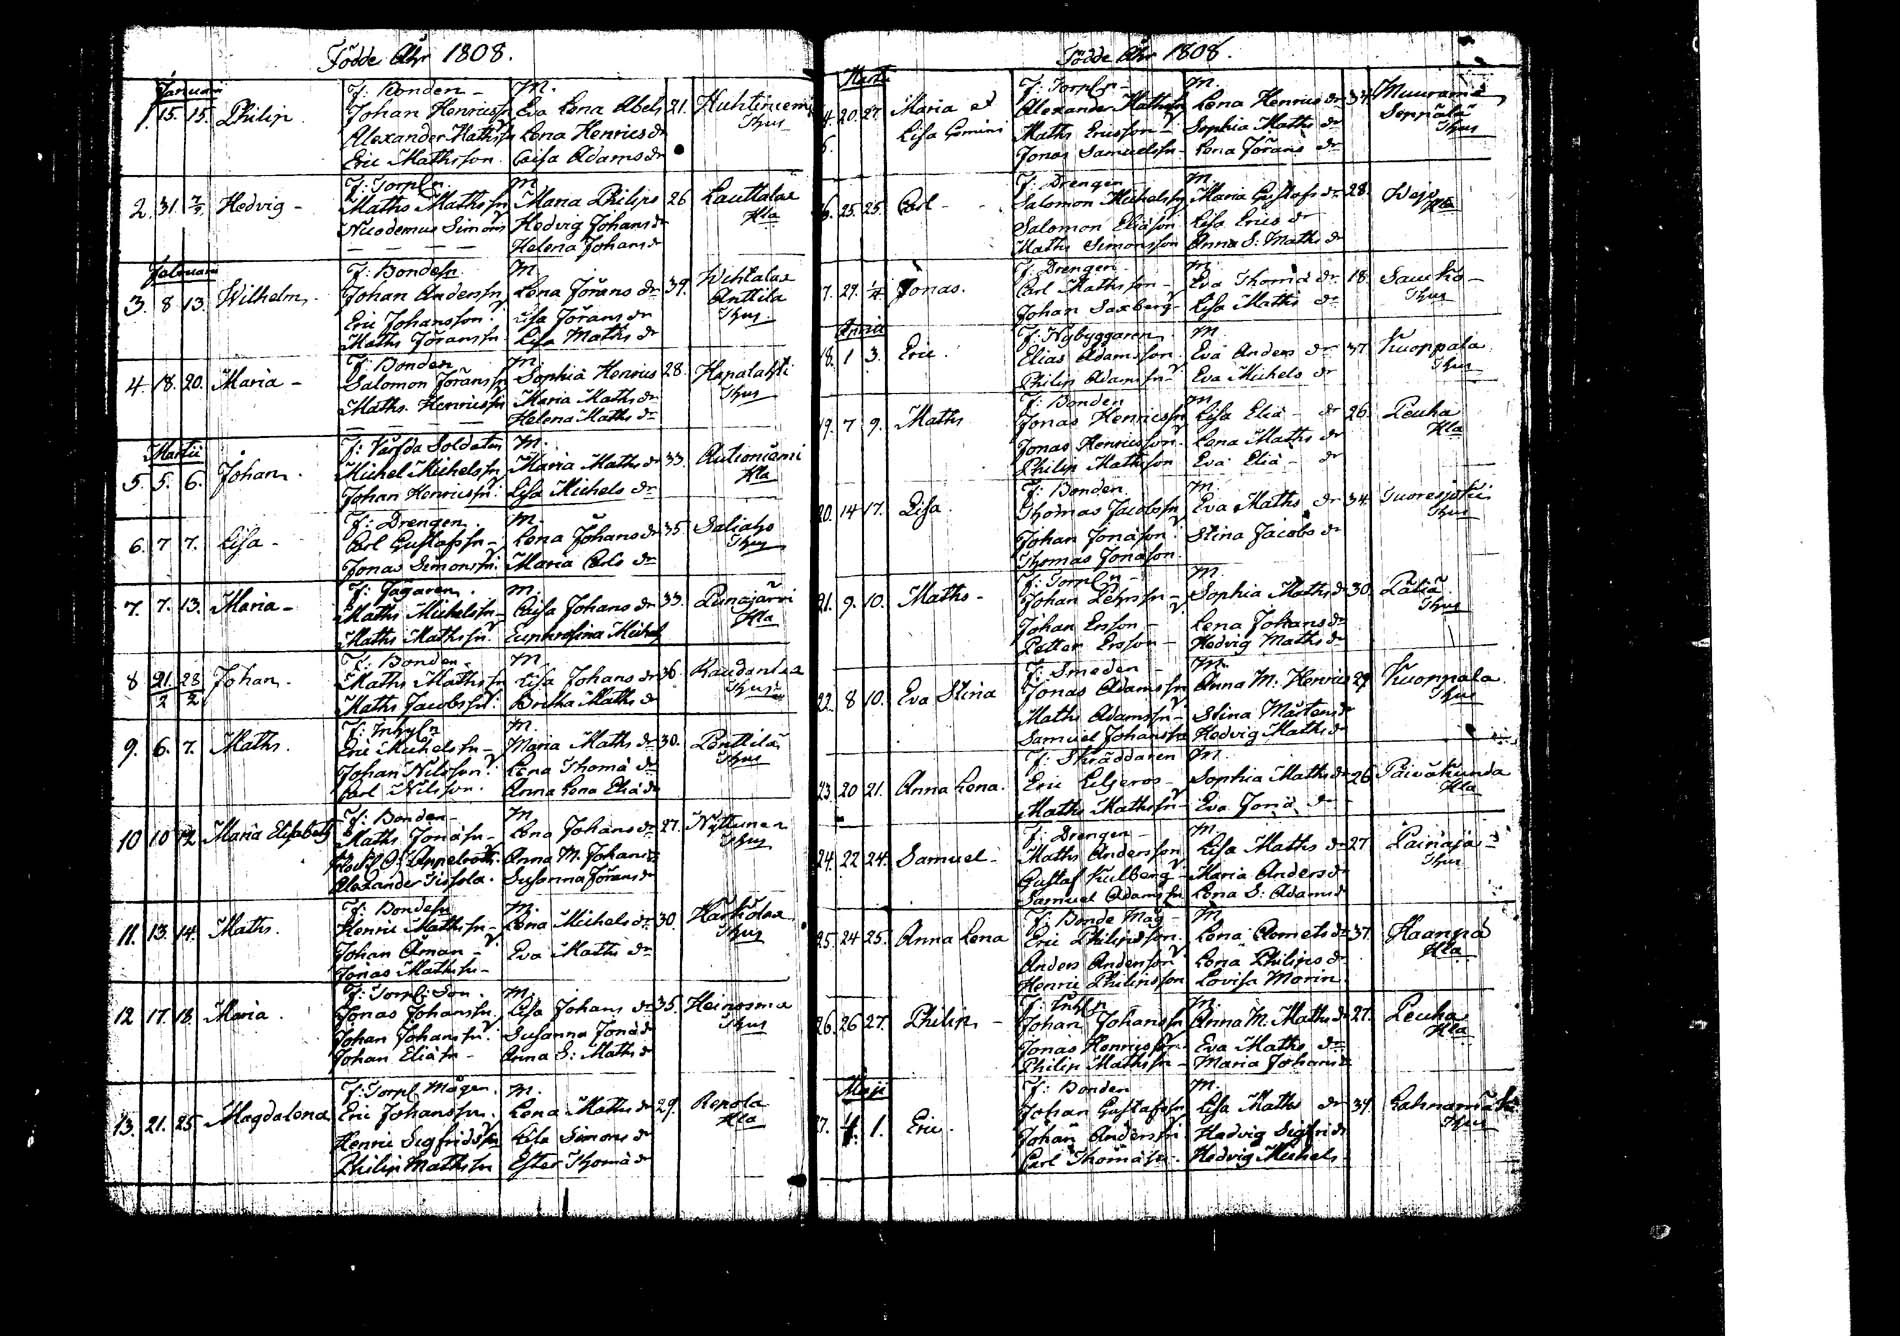 Födde Åhr 1808.
Januarii
F: Bonden - M.
1. 15. 15. Philip. Johan Henricssn Eva Lena Abels 21. Huhtiniemi
Alexander Mathssn Lena Henrics dr Thus
Eric Mathsson Caisa Adams dr
F: Torpn M.
2. 31. 7/2. Hedvig - Maths Mathssn Maria Philips 26 Lauttalax
Nicodemus Simons Hedvig Johans dr Hla
Helena Johans dr
Februarii
F: Bondesn M.
3. 8 13. Wilhelm. Johan Anderssn Lena Jörans dr 39. Wehtalax
Eric Johansson. Lisa Jörans dr Anttila
Maths Göranssn Lisa Maths dr Thus.
F: Bonden M.
4. 18. 20. Maria - Salomon Jöranssn Sophia Henrics 28. Hapalahti
Maths Henricssn Maria Maths dr Thus
Helena Maths dr
Martii
F: Varfda Soldaten M.
5. 5. 6. Johan. Michel Michelssn Maria Maths dr 33. Autioniemi
Johan Henricssn. Lisa Michels dr Hla
F: Drengen M.
6. 7 7. Lisa - Carl Gustafssn - Lena Johans dr 35 Saliaho
Jonas Simonssn. Maria Carls dr Thus
F: Jägaren. M.
7. 7. 13. Maria - Maths Michelssn - Caisa Johans dr 33. Punajärvi
Maths Mathssn. Euphrosina Michels Hla
F: Bonden - M
8 21/2 28/2 Johan. Maths Mathssn Lisa Johans dr 36. Raudanlax
Maths Jacobssn. Britha Maths dr Thus
F: Inhysn M.
9. 6. 7. Maths. Eric Michelssn - Maria Maths dr 30. Penttilä
Johan Nilsson. Lena Thomä dr Thus
Carl Nilsson. Anna Lena Eliä dr
F: Bonden - M
10 10 12 Maria Elisabeth Maths Jonässn - Lena Johans dr 27. Nyttunen
Anna M. Johans dr Thus
Alexander Susanna Jörans dr
F: Bondesn M.
11. 13. 14. Maths. Henric Mathssn - Lena Michels dr 30. Harkolax
Johan Åman - Eva Maths dr Thus
Jonas Mathssn -
F: Torp: Son. M.
12 17. 18. Maria. Jonas Johanssn. Lisa Johans dr 35. Heinosma
Johan Johanssn. Susanna Jonä dr Thus
Johan Eliässn - Anna S: Maths dr
F: Torp Mågen. M.
13. 21. 25. Magdalena Eric Johanssn. Lena Maths dr 29. Repola
Henric Sigfridssn Lisa Simons dr Hla
Philip Mathssn Ester Thomä dr
Födde Åhr 1808.
Martii
F: Torpn - M.
20. 27. Maria et Alexander Mathssn Lena Henrics dr 34. Muurame
Lisa Gemini Maths Ericsson - Sophia Maths dr Seppälä
Jonas Samuelssn - Lena Jörans dr Thus
F: Drengen - M.
16. 25. 25. Carl - - Salomon Michelssn Maria Gustafs dr 28.
Salomon Eliäson Lisa Erics dr Hla
Maths Simonsson Anna S: Maths dr
F: Drengen M.
17. 29. 1/4 Jonas. Carl Mathsson - Eva Thomä dr 18. Saukko -
Johan Saxberg - Lisa Maths dr Thus
Aprill
F: Nybyggaren M.
18. 1 3. Eric. Elias Adamsson. Eva Anders dr 37 Kuoppala
Philip Adamssn - Eva Michels dr Thus
F: Bonden M
19. 7 9. Maths Jonas Henricssn Lisa Eliä - dr 26. Leuha
Jonas Henricsson. Lena Maths dr Hla
Philip Mathsson Eva Eliä - dr
F: Bonden. M.
20. 14 17. Lisa. Thomas Jacobssn Eva Maths dr 34. Tuoresjoki
Johan Jonäson. Stina Jacobs dr Thus
Thomas Jonäson.
F: Torpn - M
21. 9. 10. Maths - Johan Pehrssn - Sophia Maths dr 30.
Johan Ersson - Lena Johans dr Thus
Petter Ersson - Hedvig Maths dr
F: Smeden - M.
22. 8 10. Eva Stina Jonas Adamssn Anna M. Henrics 29 Kuoppala.
Maths Adamssn - Stina Mårtens dr Thus
Samuel Johanssn Hedvig Maths dr
F: Skräddaren M.
23. 20 21. Anna Lena. Eric Liljeros - Sophia Maths dr 26 Päiväkunda
Maths Mathssn - Eva Jonä dr - Hla
F: Drengen - M.
24. 22 24. Samuel - Maths Andersson Lisa Maths dr 27 Painaja -
Gustaf Kulberg - Maria Anders dr Thus
Samuel Adamssn Lena S: Adams dr
F: Bonde Måg - M
25. 24 25. Anna Lena Eric Philipsson. Lena dr 37. Haanpää
Anders Andersson Lena Philips dr Hla
Henric Philipsson Lovisa Morin.
F: Inhn M.
26. 26 27. Philip - Johan Johanssn Anna M. Maths dr 27. Leuha
Jonas Henricssn. Eva Maths dr Hla
Philip Mathssn - Maria Johans dr
Maji
F: Bonden M.
27. 1. Eric. Johan Gustafssn Lisa Maths dr 34. Lahnamäki
Johan Anderssn. Hedvig Sigfrids Thus
Carl Thomässn. Hedvig Michels -